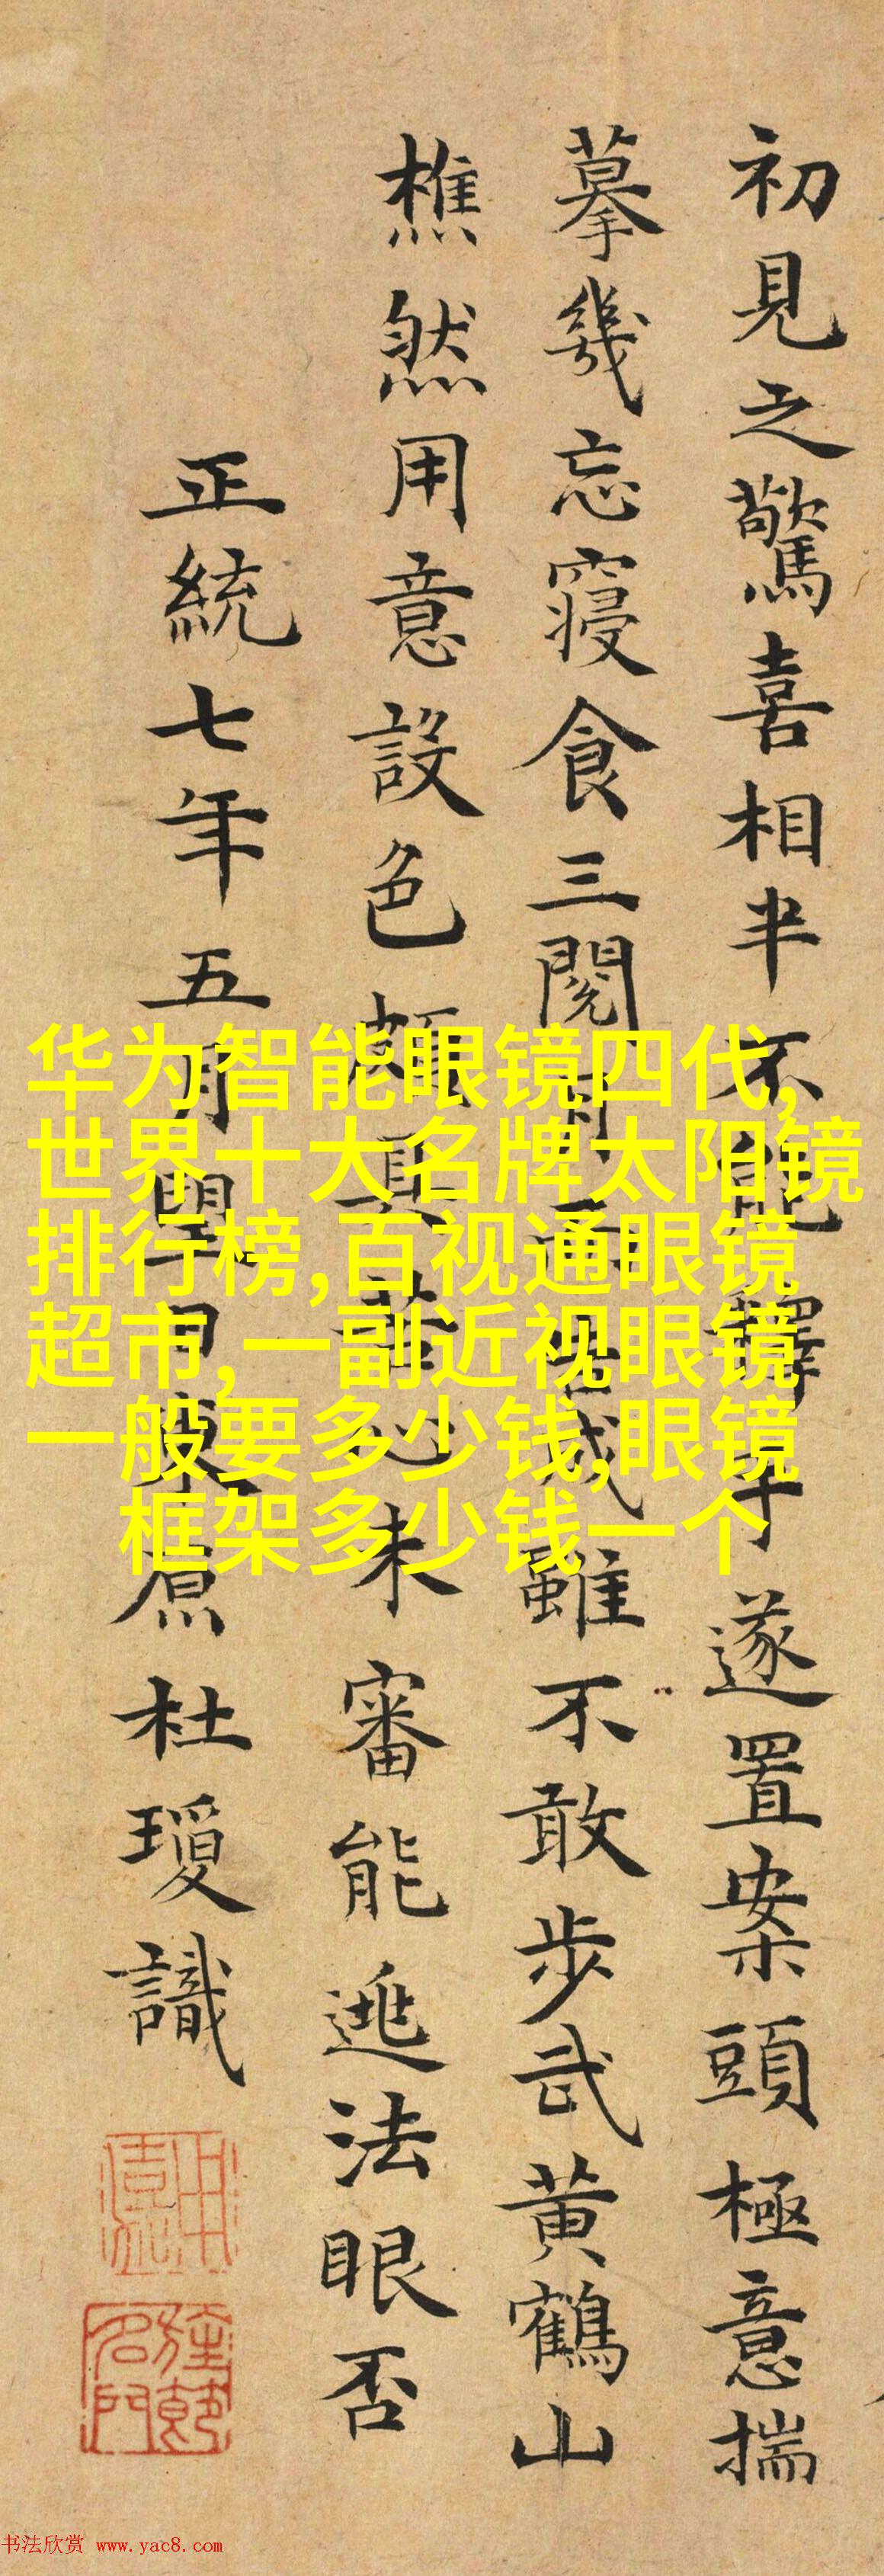 初見之驚喜相半不能釋手遂置案頭極意揣
摹幾忘寢食三閱月而成雖不敢步武黃鶴山
樵然用意設色頗具苦心未審能逃法眼否
正統七年五月望日東原杜瓊識
华为智能眼镜四代,
世界十大名牌太阳镜
排行榜,百视通眼镜
超市,一副近视眼镜
一般要多少钱,眼镜
框架多少钱一个
书法欣赏 www.yac8.com